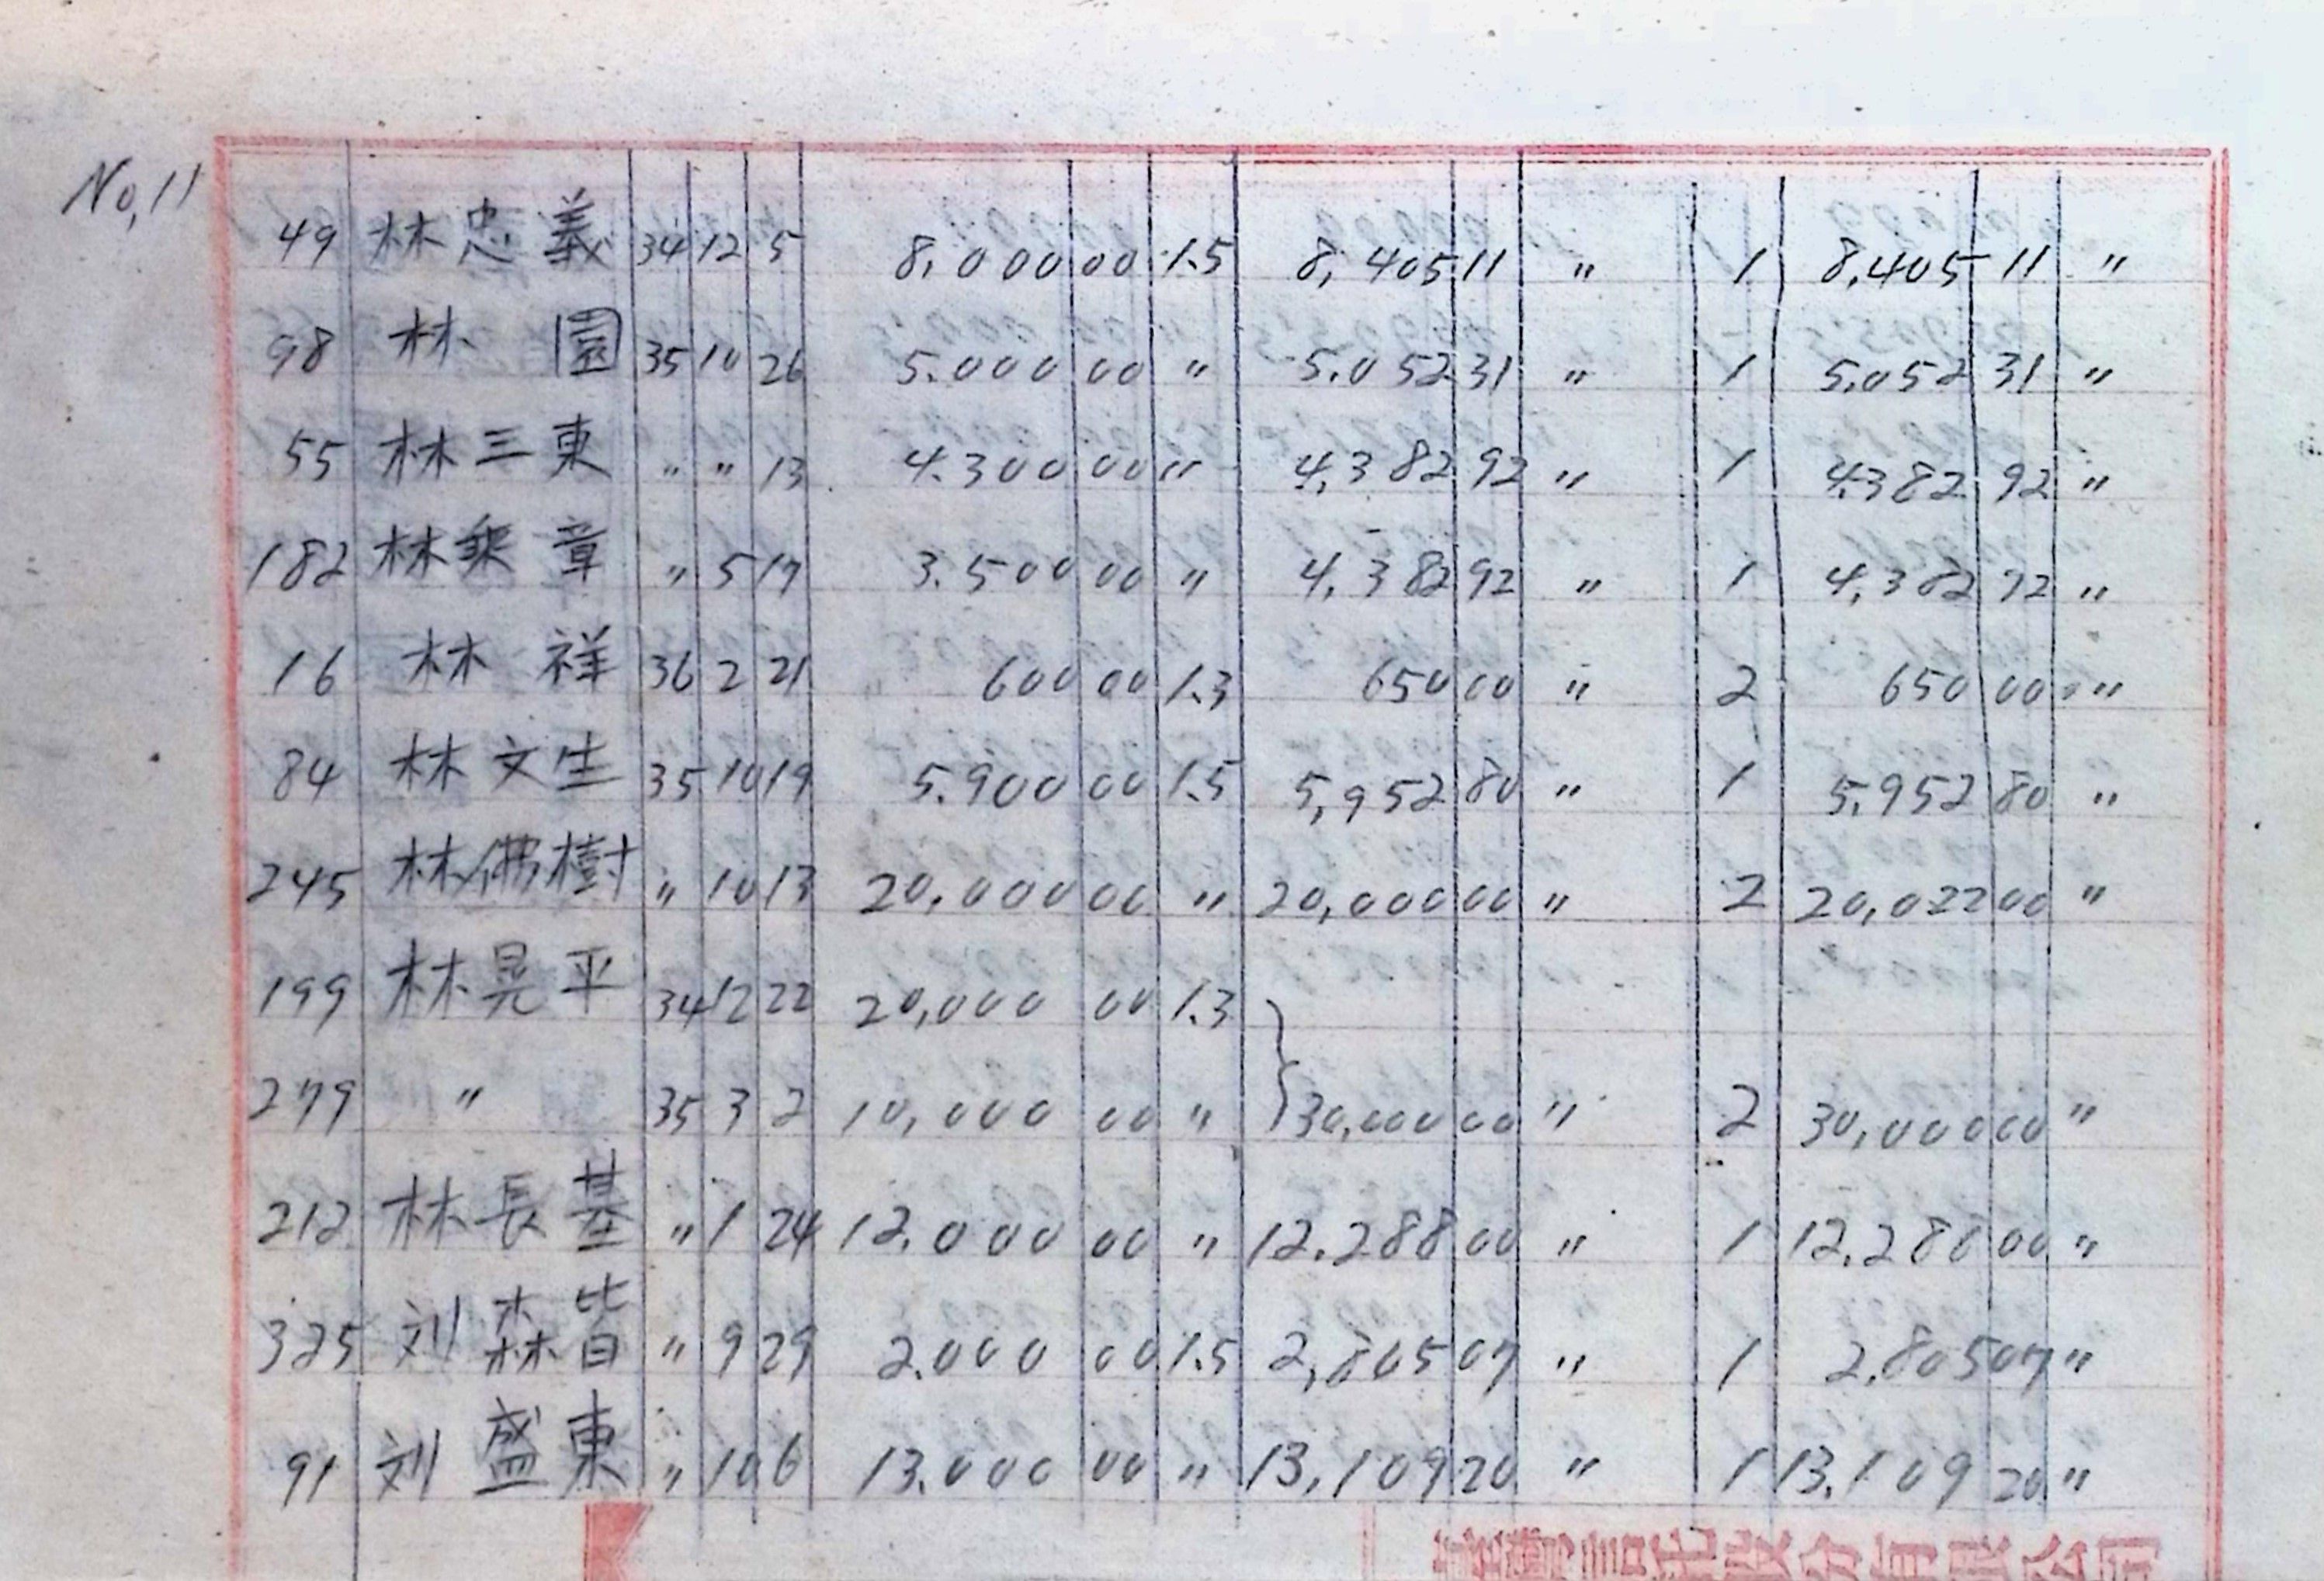 No,11
49 林忠義 34 12 5 8,000 00 1.5 8,405 11 〃 1 8,405 11 〃
98 林 園 35 10 26 5.000 00 〃 5.052 31 〃 1 5,052 31 〃
55 林三東 〃 〃 13 4.300 00 〃 4,382 92 〃 1 4,382 92 〃
182 林 章 〃 5 17 3.500 00 〃 4,382 92 〃 1 4,382 92 〃
16 林 祥 36 2 21 600 00 1.3 650 00 〃 2 650 00 〃
84 林文生 35 10 19 5.900 00 1.5 5,952 80 〃 1 5,952 80 〃
245 林佛樹 〃 10 13 20,000 00 〃 20,000 00 〃 2 20,022 00 〃
199 林晃平 34 12 22 20,000 00 1.3
279 〃 35 3 2 10,000 00 〃 30,000 00 〃 2 30,000 00 〃
212 林長基 〃 1 24 12.000 00 〃 12.288 00 〃 1 12.288 00 〃
325 刘森皆 〃 9 29 2.000 00 1.5 2,805 07 〃 1 2,805 07 〃
91 刘盛東 〃 10 6 13.000 00 〃 13,109 20 〃 1 13,109 20 〃
股份有限公司